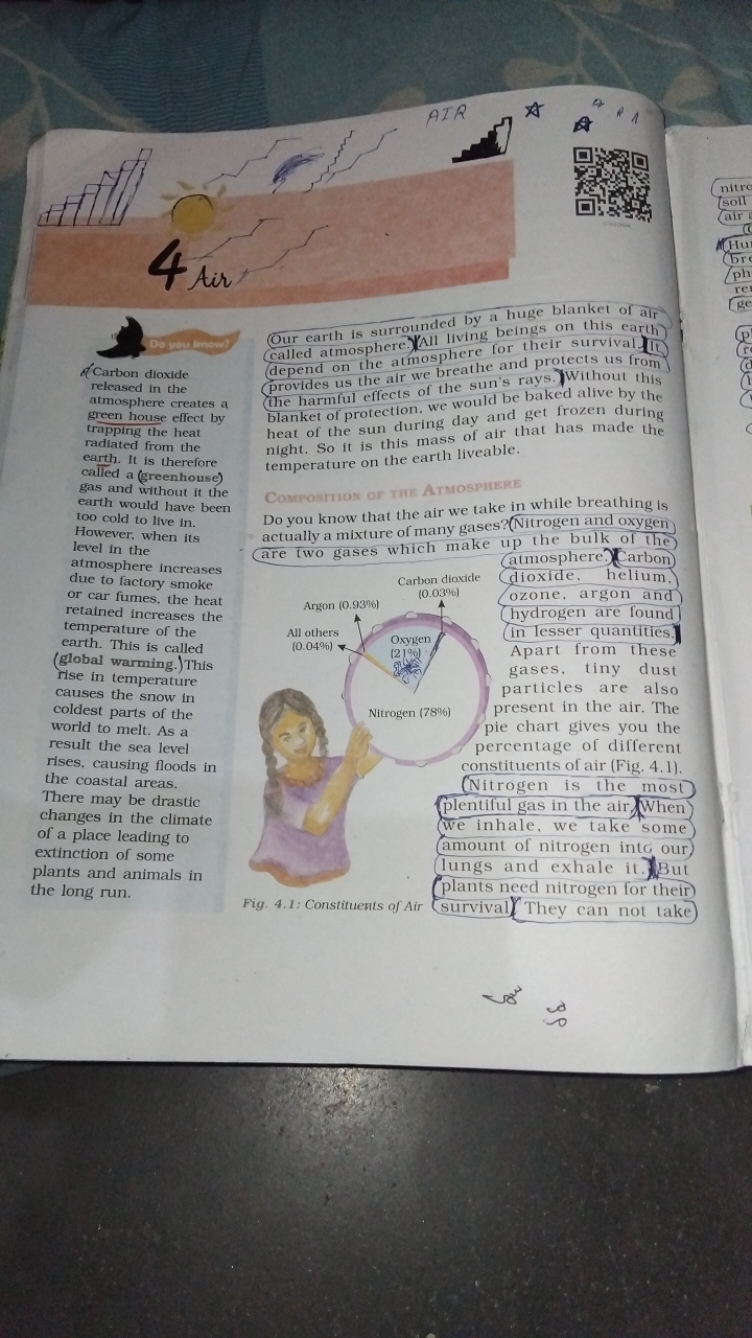 AIR
4 Air
Do you know?
Carbon dioxide
released in the
atmosphere creates a
green house effect by
trapping the heat
radiated from the
earth. It is therefore
called a (greenhouse)
gas and without it the
earth would have been
too cold to live in.
However, when its
level in the
atmosphere increases
due to factory smoke
or car fumes, the heat
retained increases the
temperature of the
earth. This is called
(global warming.) This
rise in temperature
causes the snow in
coldest parts of the
world to melt. As a
result the sea level
rises, causing floods in
the coastal areas.
There may be drastic
changes in the climate
of a place leading to
extinction of some
plants and animals in
the long run.
Our earth is surrounded by a huge blanket of air
called atmosphere. All living beings on this earth
depend on the atmosphere for their survival. It
provides us the air we breathe and protects us from
the harmful effects of the sun's rays. Without this
blanket of protection, we would be baked alive by the
heat of the sun during day and get frozen during
night. So it is this mass of air that has made the
temperature on the earth liveable.
COMPOSITION OF THE ATMOSPHERE
Do you know that the air we take in while breathing is
actually a mixture of many gases? Nitrogen and oxygen
are two gases which make up the bulk of the
atmosphere. Carbon
dioxide, helium,
ozone, argon and
hydrogen are found
in lesser quantities.
Apart from these
gases, tiny dust
particles are also
present in the air. The
pie chart gives you the
percentage of different
constituents of air (Fig. 4.1).
Nitrogen is the most
plentiful gas in the air. When
we inhale, we take some
amount of nitrogen into our
lungs and exhale it. But
plants need nitrogen for their
survival. They can not take
Carbon dioxide
(0.03%)
Argon (0.93%)
All others
(0.04%)
Oxygen
(21%)
Nitrogen (78%)
Fig. 4.1: Constituents of Air
nitro
soil
air
Hu
bre
ph
re
ge